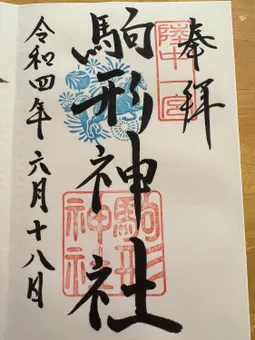 奉拝
陸中一宮
駒形神社
駒形神社
令和四年 六月十八日